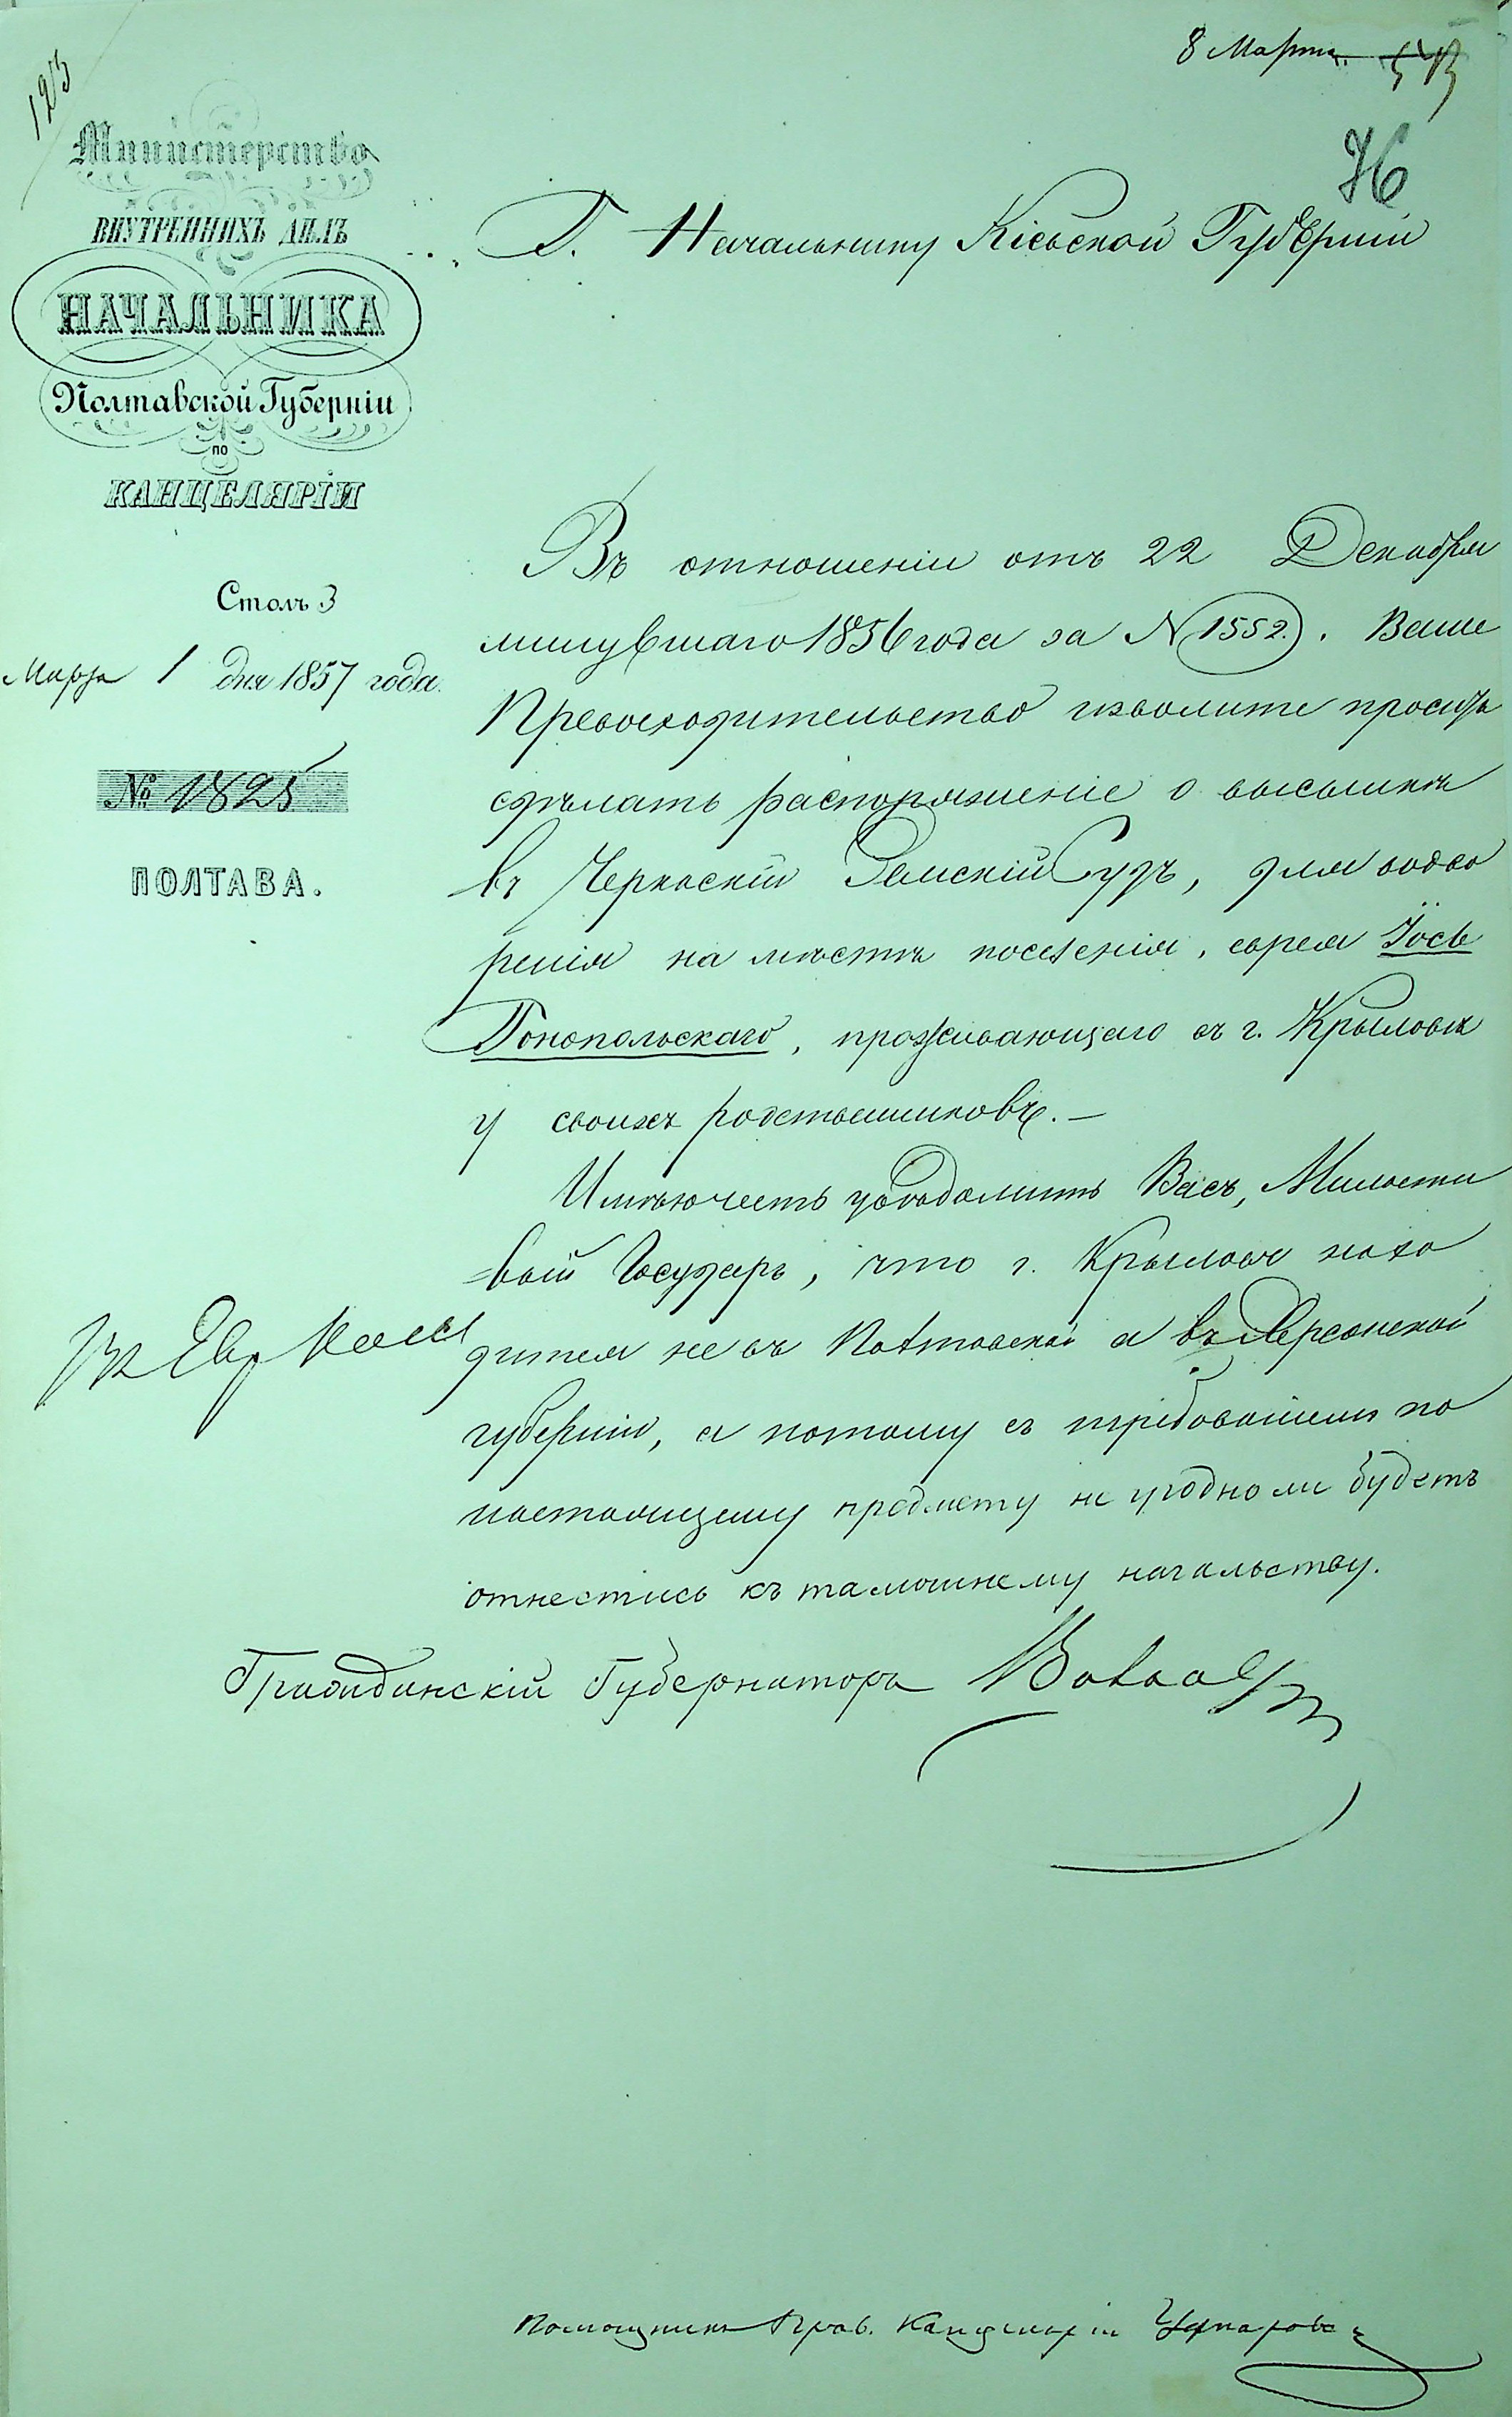 8 Марта
123
76
Министерство
ВНУТРЕННИХЪ ДѢЛЪ
НАЧАЛЬНИКА
Полтавской Губерніи
по
КАНЦЕЛЯРІИ
Столъ 3
Марта 1 дня 1857 года.
№ 1825
ПОЛТАВА.
Г. Начальнику Кіевской Губерніи
Въ отношеніи отъ 22 Декабря
минувшаго 1856 года за № 1552. Ваше
Превосходительство изволите просить
сдѣлать распоряженіе о высылкѣ
въ Черкаскій Земскій Судъ, для водво
ренія на мѣстѣ поселенія, еврея Іось
Гонопольскаго, проживающаго въ г. Крыловѣ
у своихъ родственниковъ. —
Имѣю честь увѣдомить Васъ, Милости
вый Государь, что г. Крыловъ нахо
дится не въ Полтавской а въ Херсонской
губерніи, а потому съ требованіемъ по
настоящему предмету не угодно ли будетъ
отнестись къ тамошнему начальству.
Гражданскій Губернаторъ
Помощникъ Прав. Канцеляріи